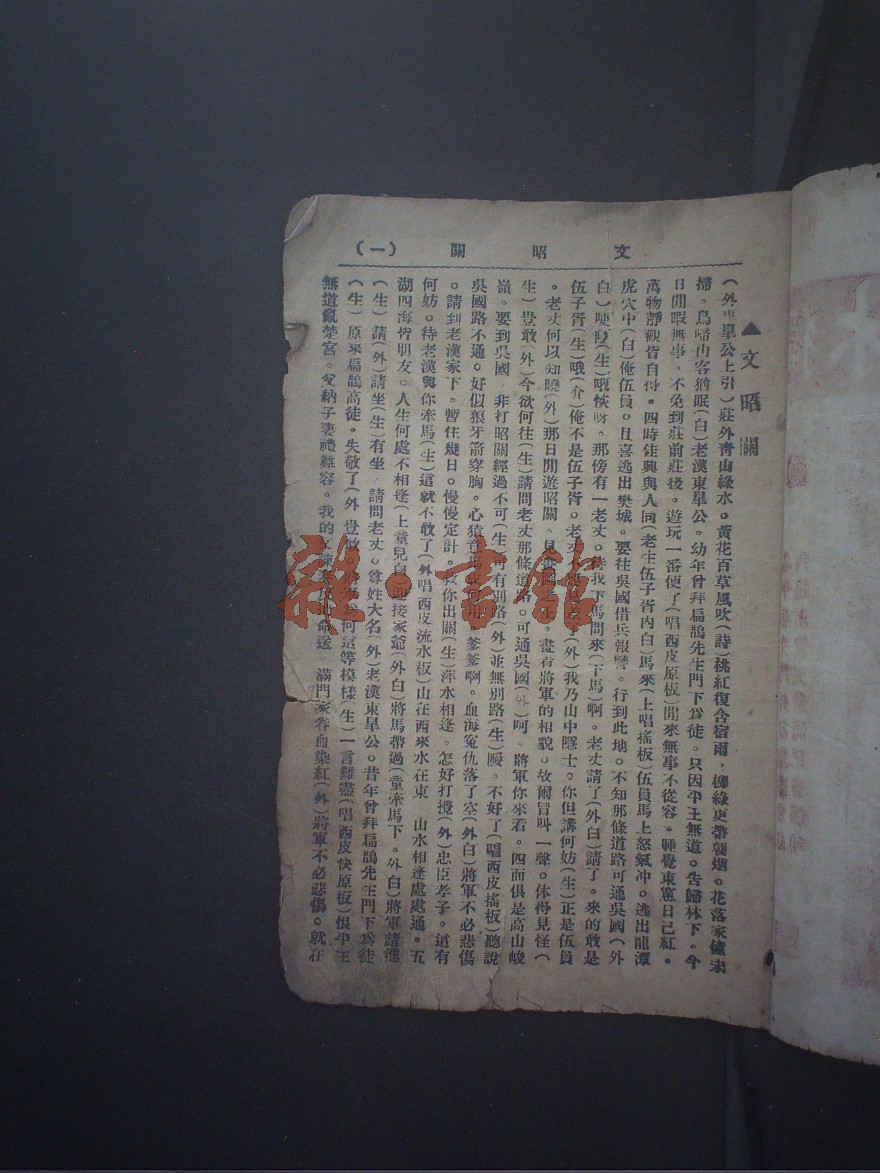 文昭關（一）
▲文昭關
（外東皐公上引）莊外青山綠水。黃花百草風吹（詩）桃紅復含宿雨，柳綠更帶朝烟。花落家僮未
掃。鳥啼山客猶眠（白）老漢東皐公。幼年曾拜扁鵲先生門下爲徒。只因平王無道。告歸林下。今
日閒暇無事。不免到莊前莊後。遊玩一番便了（唱西皮原板）閒來無事不從容。睡覺東窻日已紅。
萬物靜觀皆自得。四時佳興與人同（老生伍子胥內白）馬來（上唱搖板）伍員馬上怒氣冲。逃出龍潭
虎穴中（白）俺伍員。且喜逃出樊城。要往吳國借兵報讐。行到此地。不知那條道路可通吳國（外
白）哽（生）哦恢呀。那傍有一老丈。待我下馬問來（下馬）啊。老丈請了（外白）請了。來的敢是
伍子胥（生）哦（介）俺不是伍子胥。老丈（外）我乃山中隱士。你但講何妨（生）正是伍員
。老丈何以知曉（外）那日閒遊昭關。見畫有將軍的相貌。故爾冒叫一聲。休得見怪（
生）豈敢（外）今欲何往（生）請問老丈那條道路。可通吳國（外）呵。將軍你來看。四面俱是高山峻
嶺。要到吳國 非打昭關經過不可（生）可有別路（外）並無別路（生）噯。不好了（唱西皮搖板）聽說
吳國路不通。好似狼牙箭穿胸。心猿意爹爹啊。血海冤仇落了空（外白）將軍不必悲傷
。請到老漢家下。暫住幾日。慢慢定計。救你出關（生）萍水相逢。怎好打攪（外）忠臣孝子。這有
何妨。待老漢與你牽馬（生）這就不敢了（外唱西皮流水板）山在西來水在東 山水相逢處處通。五
湖四海皆朋友。人生何處不相逢（上童兒白）迎接家爺（外白）將馬帶過（童牽馬下。外白）將軍請進
（生）請（外）請坐（生）有坐 請問老丈。尊姓大名（外）老漢東皐公。昔年曾拜扁鵲先生門下爲徒
（生）原來扁鵲高徒。失敬了（外）豈敢何這等模樣（生）一言難盡（唱西皮快原板）恨平王
無道亂楚宮。父納子妻禮難容。我的命送。滿門家眷血染紅（外）將軍不必悲傷。就在
雜·書館